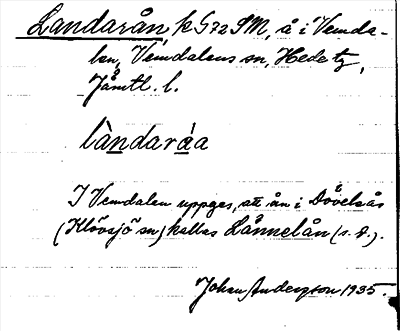 Landarån, k G72 SM, å i Vemda-
len, Vemdalens sn, Hede tg,
Jämtl. l.
làndaráa
I Vemdalen uppges, att ån i
(Klövsjö sn) kallas Lånnelån (s. d.).
Johan Andersson 1935.